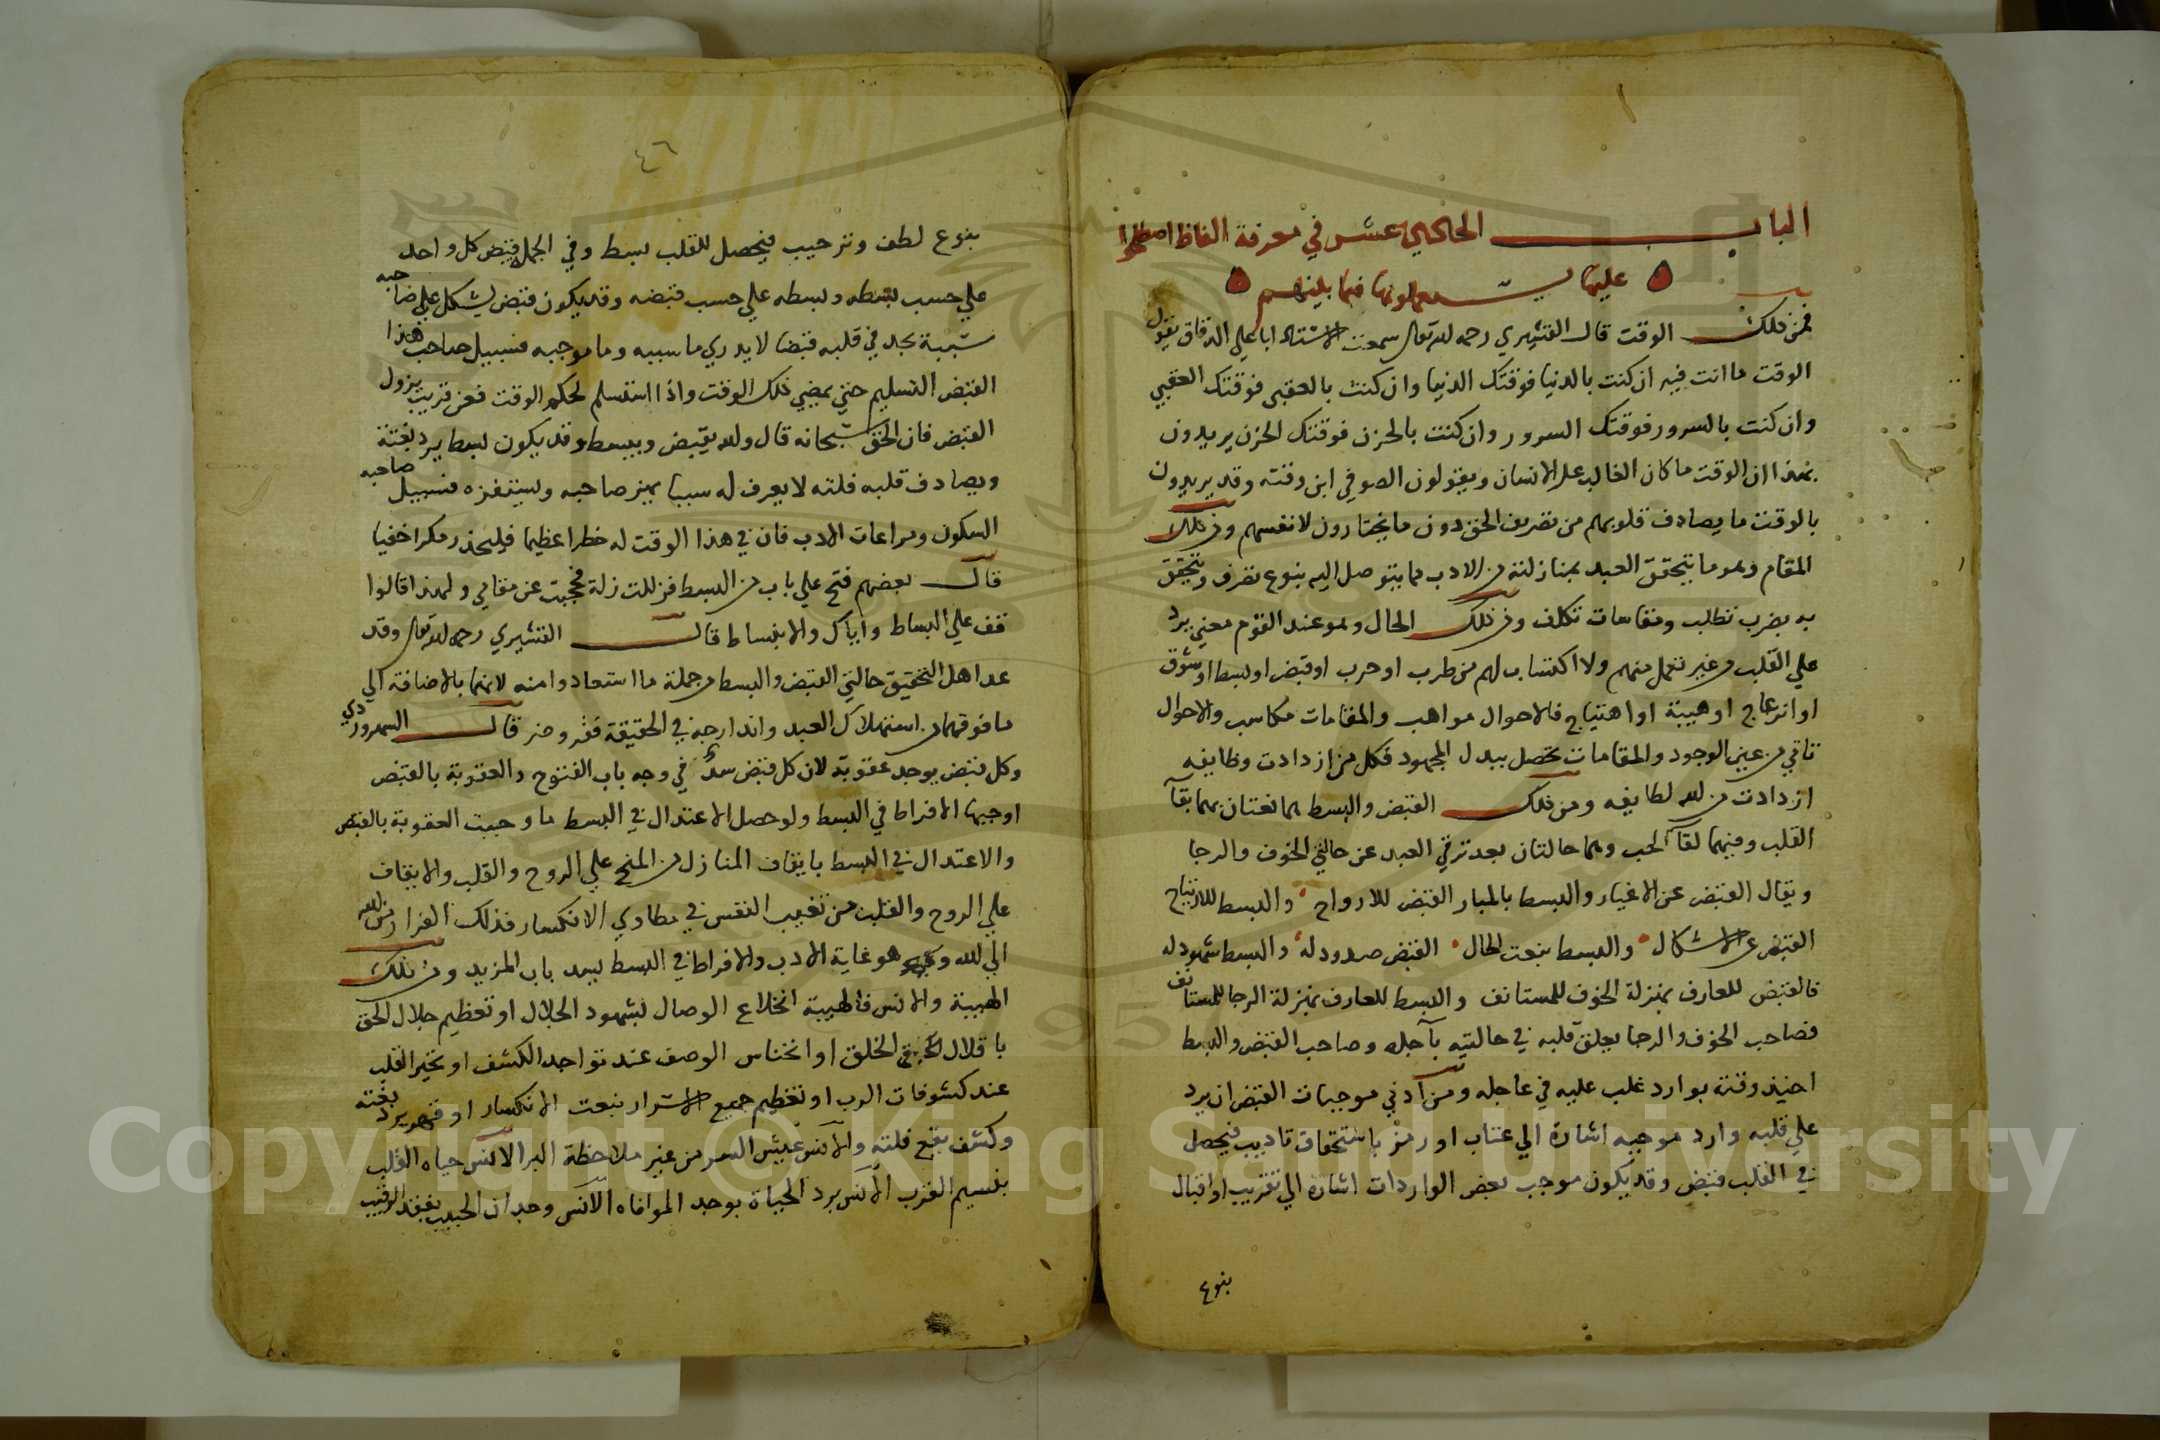 الباب الحادي عشر في معرفة الفاظ اصطلحوا
عليها يستعملونها فيما بينهم
فمن ذلك الوقت قال القشيري رحمه الله تعالى سمعت الاستاد ابا علي الدقاق يقول
الوقت ما انت فيه ان كنت بالدنيا فوقتك الدنيا وان كنت بالعقبى فوقتك العقبي
وان كنت بالسرور فوقتك السرور وان كنت بالحزن فوقتك الحزن يريدون
بهذا ان الوقت ما كان الغالب على الانسان ويقولون الصوفي ابن وقته وقد يريدون
بالوقت ما يصادف قلوبهم من تصريف الحق دون ما يختارون لانفسهم ومن ذلك
المقام وهو ما يتحقق العبد بمنازلته من الادب مما يتوصل اليه بنوع تصرف ويتحقق
به بضرب تطلب ومقاسات تكلف ومن ذلك الحال وهو عند القوم معني يرد
علي القلب من غير تعمل منهم ولا اكتساب لهم من طرب او حرب او قبض او بسط او شوق
او انزعاج او هيبة او اهتياج فالاحوال مواهب والمقامات مكاسب والاحوال
تاتي من عين الوجود والمقامات تحصل ببدل المجهود فكل من ازدادت وظايفه
ازدادت من الله لطايفه ومن ذلك القبض والبسط هما نعتان بهما بقآ
القلب وفيهما لقآ الحب وهما حالتان بعد ترقي العبد عن حالتي الخوف والرجا
ويقال القبض عن الاغيار والبسط بالمبار القبض للارواح والبسط للارتياح
القبض عن الاشكال والبسط بنعت الحال القبض صدود له والبسط شهود له
فالقبض للعارف بمنزلة الخوف للمستانف والبسط للعارف بمنزلة الرجا للمستانف
فصاحب الخوف والرجا يعلق قلبه في حالتيه بآجله وصاحب القبض والبسط
اخيذ وقته بوارد غلب عليه في عاجله ومن ادني موجبات القبض ان يرد
علي قلبه وارد موجبه اشارة الي عتاب او رمز باستحقاق تاديب فيحصل
في القلب قبض وقد يكون موجب بعض الواردات اشاره الي تقريب او اقبال
بنوع
٤٦
بنوع لطف وترحيب فيحصل للقلب بسط وفي الجملة قبض كل واحد
علي حسب بسطه وبسطه علي حسب قبضه وقد يكون قبض يشكل علي صاحبه
سببه يجد في قلبه قبضا لا يدري ما سببه وما موجبه فسبيل صاحب هذا
القبض التسليم حتي يمضي ذلك الوقت واذا استسلم لحكم الوقت فعن قريب يزول
القبض فان الحق سبحانه قال والله يقبض ويبسط وقد يكون بسط يرد بغتة
ويصادف قلبه فلته لا يعرف له سببا يهز صاحبه ويستفزه فسبيل صاحبه
السكون ومراعات الادب فان في هذا الوقت له خطرا عظيما فليحذر مكرا خفيا
قال بعضهم فتح علي باب من البسط فزللت زلة فحجبت عن مقامي ولهذا قالوا
قف علي البساط واياك والانبساط قال القشيري رحمه الله تعالى وقد
عد اهل التحقيق حالتي القبض والبسط من جملة ما استعادوا منه لانهما بالاضافة الي
ما فوقهما من استهلاك العبد واندارجه في الحقيقة فقر وضر قال السهروردي
وكل قبض يوجد عقوبة لان كل قبض سد في وجه باب الفتوح والعقوبة بالقبض
اوجبها الافراط في البسط ولو حصل الاعتدال في البسط ما وجبت العقوبة بالقبض
والاعتدال في البسط بايقاف المنازل من المنح علي الروح والقلب والايقاف
علي الروح والقلب من تغييب النفس في مطاوي الانكسار فذلك الفرار من الله
الي الله وهو غاية الادب والافراط في البسط يسد باب المزيد ومن ذلك
الهيبة والانس فالهيبة انخلاع الوصال لشهود الجلال او تعظيم جلال الحق
باقلال الخلق او انخناس الوصف عند تواجد الكشف او تحير القلب
عند كشوفات الرب او تعظيم جميع الاسرار بنعت الانكسار او قهر يرد بغته
وكشف يقع فلته والانس عيش السر من غير ملاحظة البر الانس حياه القلب
بنسيم القرب الانس برد الحياة بوجد الموافاه الانس وجدان الحبيب بفقد الرقيب
Copyright © King Saud University